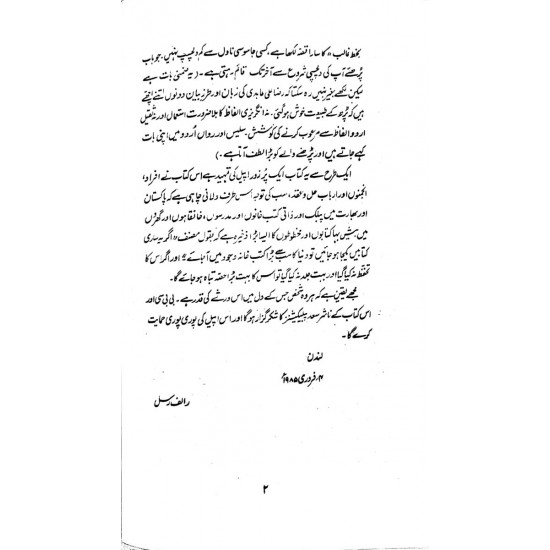 بخط غالب" کا سارا قصہ لکھا ہے، کسی جاسوسی ناول سے کم دلچسپ نہیں، جو باب
پڑھئے آپ کی دلچسپی شروع سے آخر تک قائم رہتی ہے۔ (یہ ضمنی بات ہے
لیکن لکھے بغیر نہیں رہ سکتا کہ رضا علی عابدی کی زبان اور طرز بیان دونوں اتنے اچھے
ہیں کہ پڑھ کے طبیعت خوش ہوگئی۔ نہ انگریزی الفاظ کا بلا ضرورت استعمال اور نہ ثقیل
اردو الفاظ سے مرعوب کرنے کی کوشش۔ سلیس اور رواں اردو میں اپنی بات
کہے جاتے ہیں اور پڑھنے والے کو بڑا لطف آتا ہے۔)
ایک طرح سے یہ کتاب ایک پُر زور اپیل کی تمہید ہے اس کتاب نے افراد،
انجمنوں اور ارباب حل و عقد، سب کی توجہ اس طرف دلانی چاہی ہے کہ پاکستان
اور بھارت میں پبلک اور ذاتی کتب خانوں اور مدرسوں، خانقاہوں اور گھروں
میں بیش بہا کتابوں اور مخطوطوں کا ایسا بڑا ذخیرہ ہے کہ بقول مصنف "اگر یہ ساری
کتابیں یکجا ہو جائیں تو دنیا کا سب سے بڑا کتب خانہ وجود میں آجائے" اور اگر اس کا
تحفظ نہ کیا گیا اور بہت جلد نہ کیا گیا تو اس کا بہت بڑا حصہ تباہ ہو جائے گا۔
مجھے یقین ہے کہ ہر وہ شخص جس کے دل میں اس ورثے کی قدر ہے۔ بی بی سی اور
اس کتاب کے ناشر سعد پبلیکیشنز کا شکر گزار ہوگا اور اس اپیل کی پوری پوری حمایت
کرے گا۔
لندن
۴ر فروری ۱۹۸۵ء
رالف رسل
۲